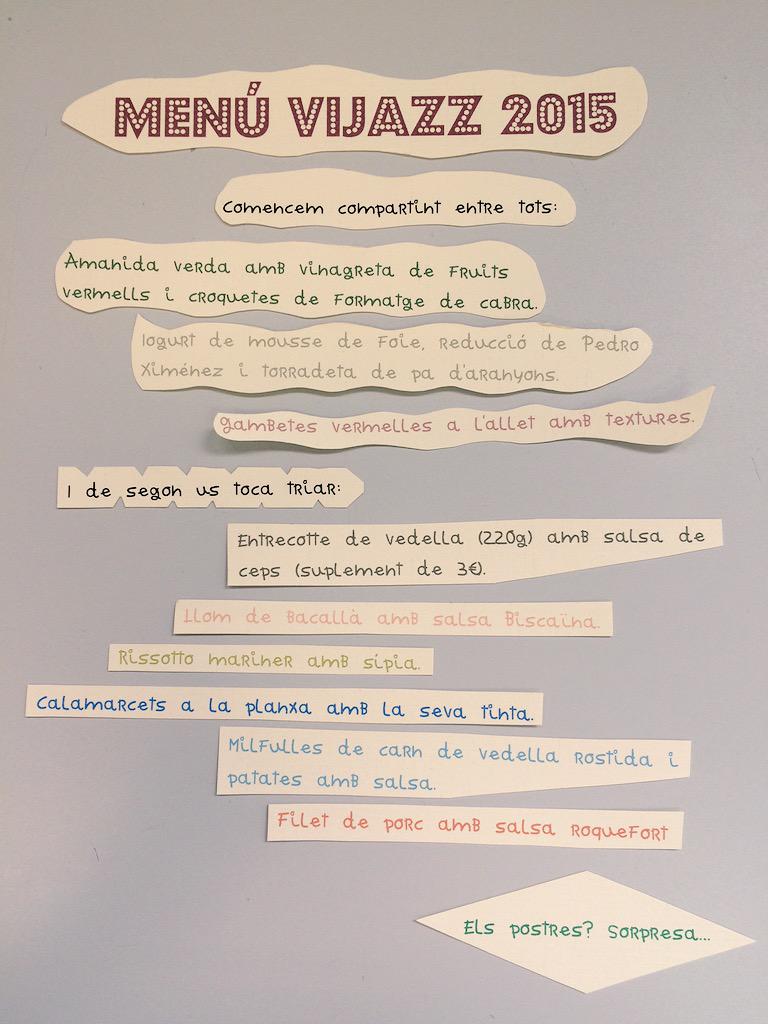 MENÚ VIJAZZ 2015
Comencem compartint entre tots:
Amanida verda amb vinagreta de fruits
vermells i croquetes de formatge de cabra.
Iogurt de mousse de foie, reducció de Pedro
Ximénez i torradeta de pa d'aranyons.
Gambetes vermelles a l'allet amb textures.
I de segon us toca triar:
Entrecotte de vedella (220g) amb salsa de
ceps (suplement de 3€).
Llom de bacallà amb salsa biscaïna.
Rissotto mariner amb sípia.
Calamarcets a la planxa amb la seva tinta.
Milfulles de carn de vedella rostida i
patates amb salsa.
Filet de porc amb salsa roquefort
Els postres? Sorpresa...